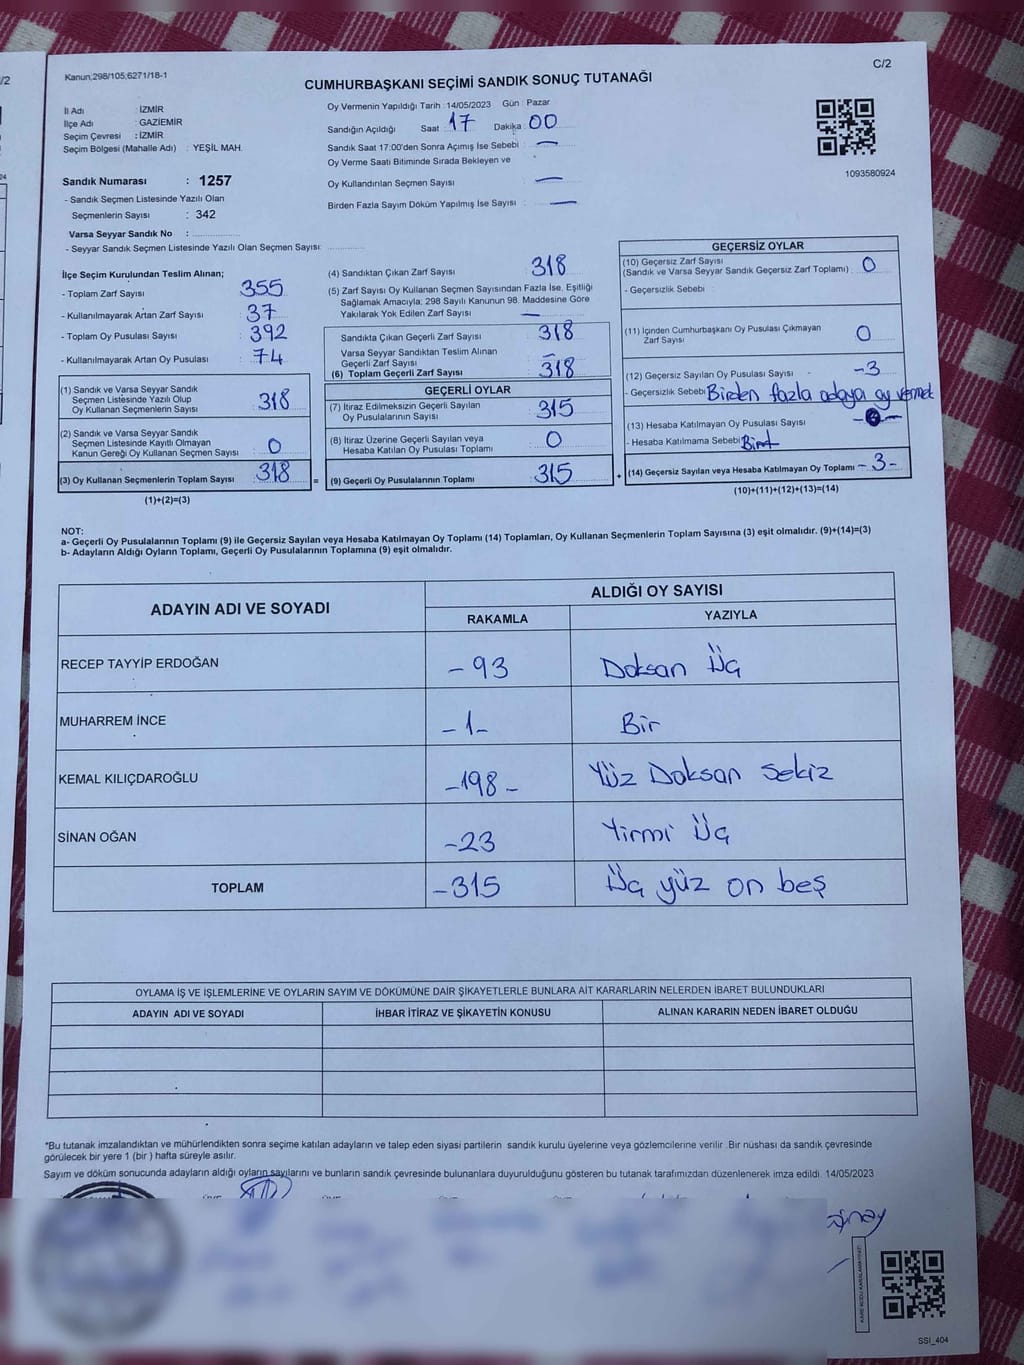 /2
C/2
Kanun;298/105;6271/18-1
CUMHURBAŞKANI SEÇİMİ SANDIK SONUÇ TUTANAĞI
İl Adı : İZMİR
İlçe Adı : GAZİEMİR
Seçim Çevresi : İZMİR
Seçim Bölgesi (Mahalle Adı) : YEŞİL MAH.
Oy Vermenin Yapıldığı Tarih : 14/05/2023 Gün : Pazar
Sandığın Açıldığı Saat 17 Dakika : 00
Sandık Saat 17:00'den Sonra Açımış İse Sebebi : —
Oy Verme Saati Bitiminde Sırada Bekleyen ve
Oy Kullandırılan Seçmen Sayısı : —
Birden Fazla Sayım Döküm Yapılmış İse Sayısı : —
1093580924
Sandık Numarası : 1257
- Sandık Seçmen Listesinde Yazılı Olan
Seçmenlerin Sayısı : 342
Varsa Seyyar Sandık No : ..............
- Seyyar Sandık Seçmen Listesinde Yazılı Olan Seçmen Sayısı: ..........
İlçe Seçim Kurulundan Teslim Alınan;
- Toplam Zarf Sayısı 355
- Kullanılmayarak Artan Zarf Sayısı : 37
- Toplam Oy Pusulası Sayısı : 392
- Kullanılmayarak Artan Oy Pusulası : 74
(1) Sandık ve Varsa Seyyar Sandık
Seçmen Listesinde Yazılı Olup
Oy Kullanan Seçmenlerin Sayısı : 318
(2) Sandık ve Varsa Seyyar Sandık
Seçmen Listesinde Kayıtlı Olmayan
Kanun Gereği Oy Kullanan Seçmen Sayısı : 0
(3) Oy Kullanan Seçmenlerin Toplam Sayısı : 318 =
(1)+(2)=(3)
(4) Sandıktan Çıkan Zarf Sayısı : 318
(5) Zarf Sayısı Oy Kullanan Seçmen Sayısından Fazla İse, Eşitliği
Sağlamak Amacıyla; 298 Sayılı Kanunun 98. Maddesine Göre
Yakılarak Yok Edilen Zarf Sayısı : —
Sandıkta Çıkan Geçerli Zarf Sayısı : 318
Varsa Seyyar Sandıktan Teslim Alınan
Geçerli Zarf Sayısı : —
(6) Toplam Geçerli Zarf Sayısı : 318
GEÇERLİ OYLAR
(7) İtiraz Edilmeksizin Geçerli Sayılan
Oy Pusulalarının Sayısı : 315
(8) İtiraz Üzerine Geçerli Sayılan veya
Hesaba Katılan Oy Pusulası Toplamı : 0
(9) Geçerli Oy Pusulalarının Toplamı : 315 +
GEÇERSİZ OYLAR
(10) Geçersiz Zarf Sayısı
(Sandık ve Varsa Seyyar Sandık Geçersiz Zarf Toplamı) : 0
- Geçersizlik Sebebi :
(11) İçinden Cumhurbaşkanı Oy Pusulası Çıkmayan
Zarf Sayısı : 0
(12) Geçersiz Sayılan Oy Pusulası Sayısı : -3
- Geçersizlik Sebebi Birden fazla adaya oy vermek
(13) Hesaba Katılmayan Oy Pusulası Sayısı
- Hesaba Katılmama Sebebi
(14) Geçersiz Sayılan veya Hesaba Katılmayan Oy Toplamı - 3 -
(10)+(11)+(12)+(13)=(14)
NOT:
a- Geçerli Oy Pusulalarının Toplamı (9) ile Geçersiz Sayılan veya Hesaba Katılmayan Oy Toplamı (14) Toplamları, Oy Kullanan Seçmenlerin Toplam Sayısına (3) eşit olmalıdır. (9)+(14)=(3)
b- Adayların Aldığı Oyların Toplamı, Geçerli Oy Pusulalarının Toplamına (9) eşit olmalıdır.
ADAYIN ADI VE SOYADI ALDIĞI OY SAYISI
RAKAMLA YAZIYLA
RECEP TAYYİP ERDOĞAN - 93 Doksan Üç
MUHARREM İNCE - 1 - Bir
KEMAL KILIÇDAROĞLU - 198 - Yüz Doksan Sekiz
SİNAN OĞAN - 23 Yirmi Üç
TOPLAM - 315 Üç yüz on beş
OYLAMA İŞ VE İŞLEMLERİNE VE OYLARIN SAYIM VE DÖKÜMÜNE DAİR ŞİKAYETLERLE BUNLARA AİT KARARLARIN NELERDEN İBARET BULUNDUKLARI
ADAYIN ADI VE SOYADI İHBAR İTİRAZ VE ŞİKAYETİN KONUSU ALINAN KARARIN NEDEN İBARET OLDUĞU
*Bu tutanak imzalandıktan ve mühürlendikten sonra seçime katılan adayların ve talep eden siyasi partilerin sandık kurulu üyelerine veya gözlemcilerine verilir .Bir nüshası da sandık çevresinde
görülecek bir yere 1 (bir ) hafta süreyle asılır.
Sayım ve döküm sonucunda adayların aldığı oyların sayılarını ve bunların sandık çevresinde bulunanlara duyurulduğunu gösteren bu tutanak tarafımızdan düzenlenerek imza edildi. 14/05/2023
SSI_404